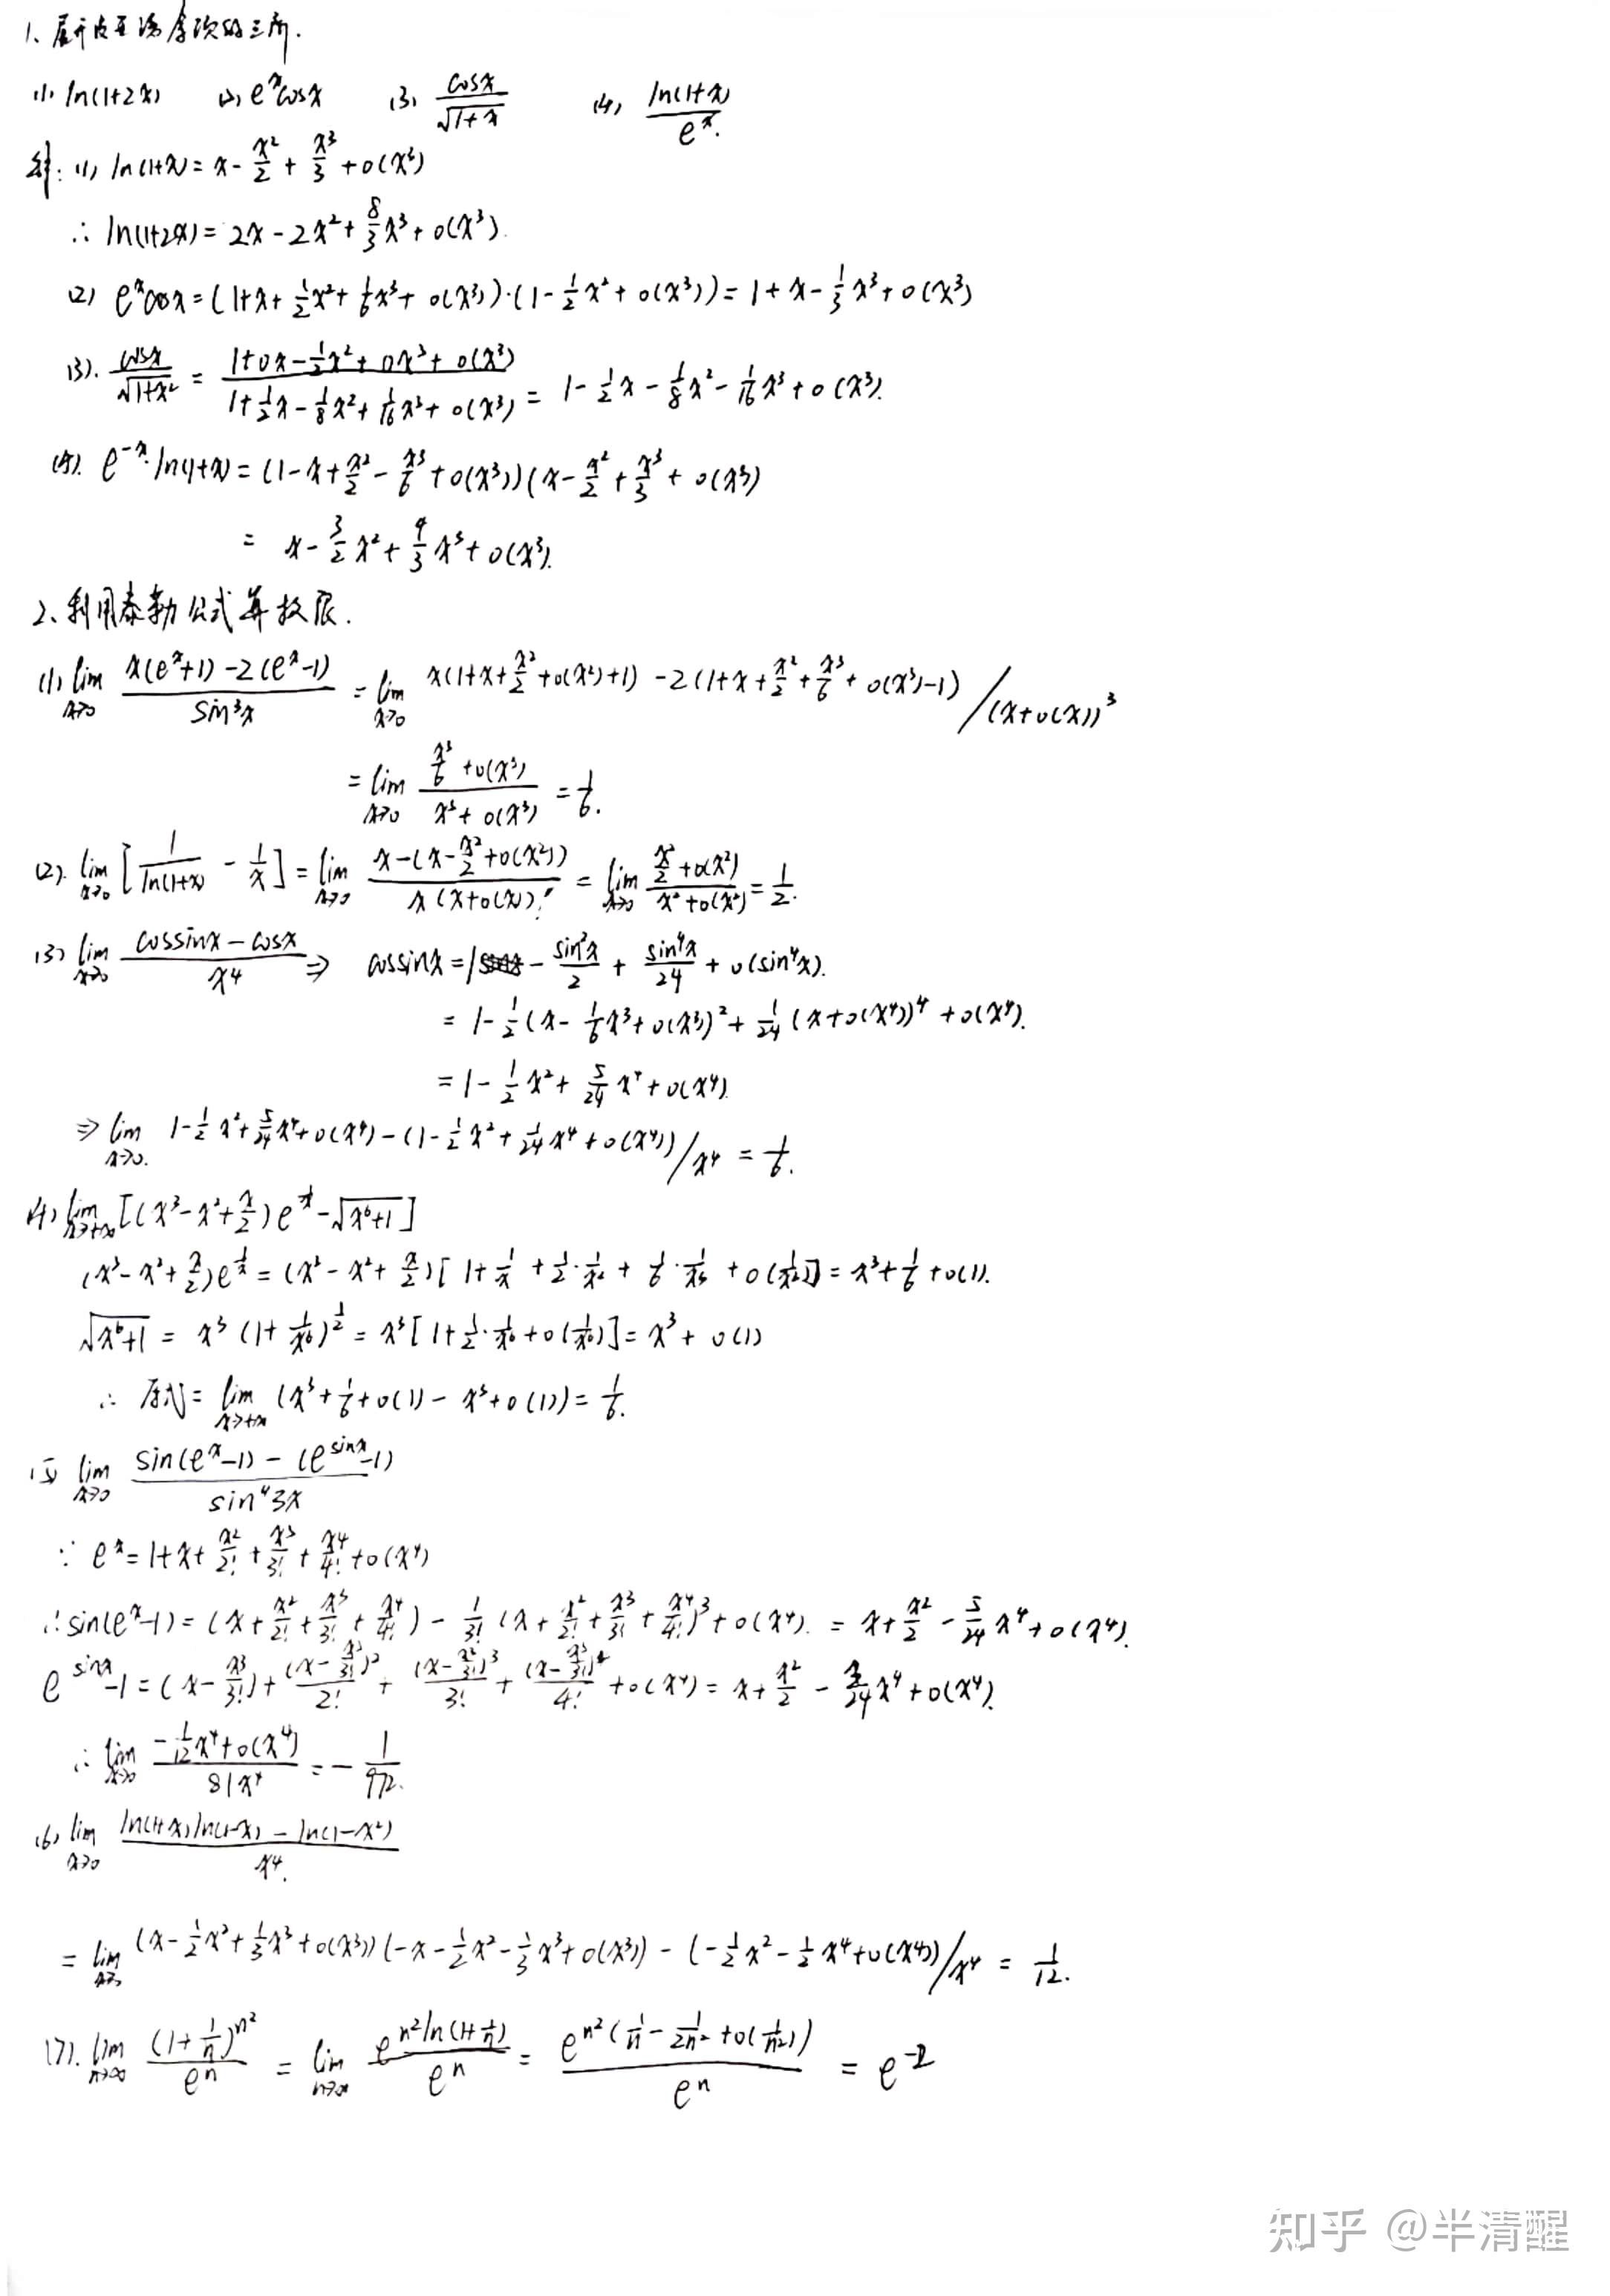 1、展开皮亚诺余项的三阶.
(1) ln(1+2x) (2) e^x cosx (3) cosx/√(1+x) (4) ln(1+x)/e^x.
解: (1) ln(1+x) = x - x²/2 + x³/3 + o(x³)
∴ ln(1+2x) = 2x - 2x² + 8/3 x³ + o(x³).
(2) e^x cosx = (1+x+½x²+1/6x³+o(x³))·(1-½x²+o(x³)) = 1+x-1/3x³+o(x³)
(3). cosx/√(1+x²) = (1+0x-½x²+0x³+o(x³))/(1+½x-1/8x²+1/16x³+o(x³)) = 1-½x-1/8x²-1/16x³+o(x³).
(4). e^(-x)·ln(1+x) = (1-x+x²/2-x³/6+o(x³))(x-x²/2+x³/3+o(x³)
= x-3/2x²+4/3x³+o(x³).
2、利用泰勒公式算极限.
(1) lim x→0 (x(e^x+1)-2(e^x-1))/sin³x = lim x→0 x(1+x+x²/2+o(x²)+1)-2(1+x+x²/2+x³/6+o(x³)-1)/(x+o(x))³
= lim x→0 (x³/6+o(x³))/(x³+o(x³)) = 1/6.
(2). lim x→0 [1/ln(1+x) - 1/x] = lim x→0 (x-(x-x²/2+o(x²)))/(x(x+o(x))) = lim x→0 (x²/2+o(x²))/(x²+o(x²)) = 1/2.
(3) lim x→0 (cossinx-cosx)/x⁴ ⇒ cossinx = 1 - sin²x/2 + sin⁴x/24 + o(sin⁴x).
= 1-½(x-1/6x³+o(x³))²+1/24(x+o(x⁴))⁴+o(x⁴).
= 1-½x²+5/24x⁴+o(x⁴).
⇒ lim x→0. 1-½x²+5/24x⁴+o(x⁴)-(1-½x²+1/24x⁴+o(x⁴))/x⁴ = 1/6.
(4) lim x→+∞ [(x³-x²+x/2)e^(1/x)-√(x⁶+1)]
(x³-x²+x/2)e^(1/x) = (x³-x²+x/2)[1+1/x+½·1/x²+1/6·1/x³+o(1/x³)] = x³+1/6+o(1).
√(x⁶+1) = x³(1+1/x⁶)^½ = x³[1+½·1/x⁶+o(1/x⁶)] = x³+o(1)
∴ 原式 = lim x→+∞ (x³+1/6+o(1)-x³+o(1)) = 1/6.
(5) lim x→0 (sin(e^x-1)-(e^sinx-1))/sin⁴3x
∵ e^x = 1+x+x²/2!+x³/3!+x⁴/4!+o(x⁴)
∴ sin(e^x-1) = (x+x²/2!+x³/3!+x⁴/4!)-1/3!(x+x²/2!+x³/3!+x⁴/4!)³+o(x⁴). = x+x²/2-5/24x⁴+o(x⁴).
e^sinx-1 = (x-x³/3!)+(x-x³/3!)²/2!+(x-x³/3!)³/3!+(x-x³/3!)⁴/4!+o(x⁴) = x+x²/2-3/24x⁴+o(x⁴).
∴ lim x→0 (-1/12x⁴+o(x⁴))/81x⁴ = -1/972.
(6) lim x→0 (ln(1+x)ln(1-x)-ln(1-x²))/x⁴.
= lim x→0 (x-½x²+1/3x³+o(x³))(-x-½x²-1/3x³+o(x³))-(-½x²-½x⁴+o(x⁴))/x⁴ = 1/12.
(7). lim n→∞ (1+1/n)^n²/e^n = lim n→∞ e^(n²ln(1+1/n))/e^n = e^(n²(1/n-1/2n²+o(1/n²)))/e^n = e^(-½)
知乎 @半清醒